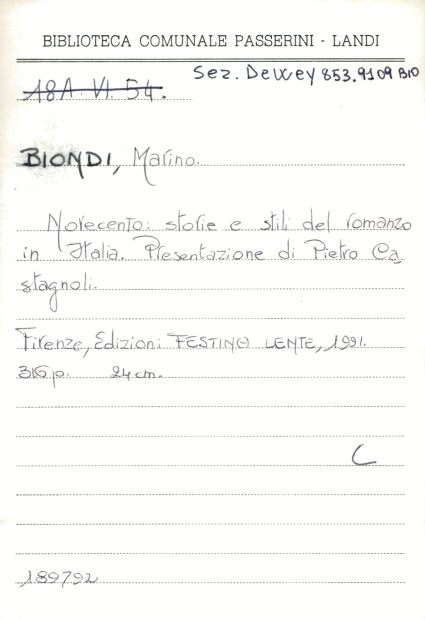 BIBLIOTECA COMUNALE PASSERINI - LANDI
Sez. Dewey 853.9109 BIO
18A. VI. 54.
BIONDI, Marino.
Novecento: storie e stili del romanzo
in Italia. Presentazione di Pietro Ca
stagnoli.
Firenze, Edizioni FESTINA LENTE, 1991.
316 p. 24 cm.
C
189792